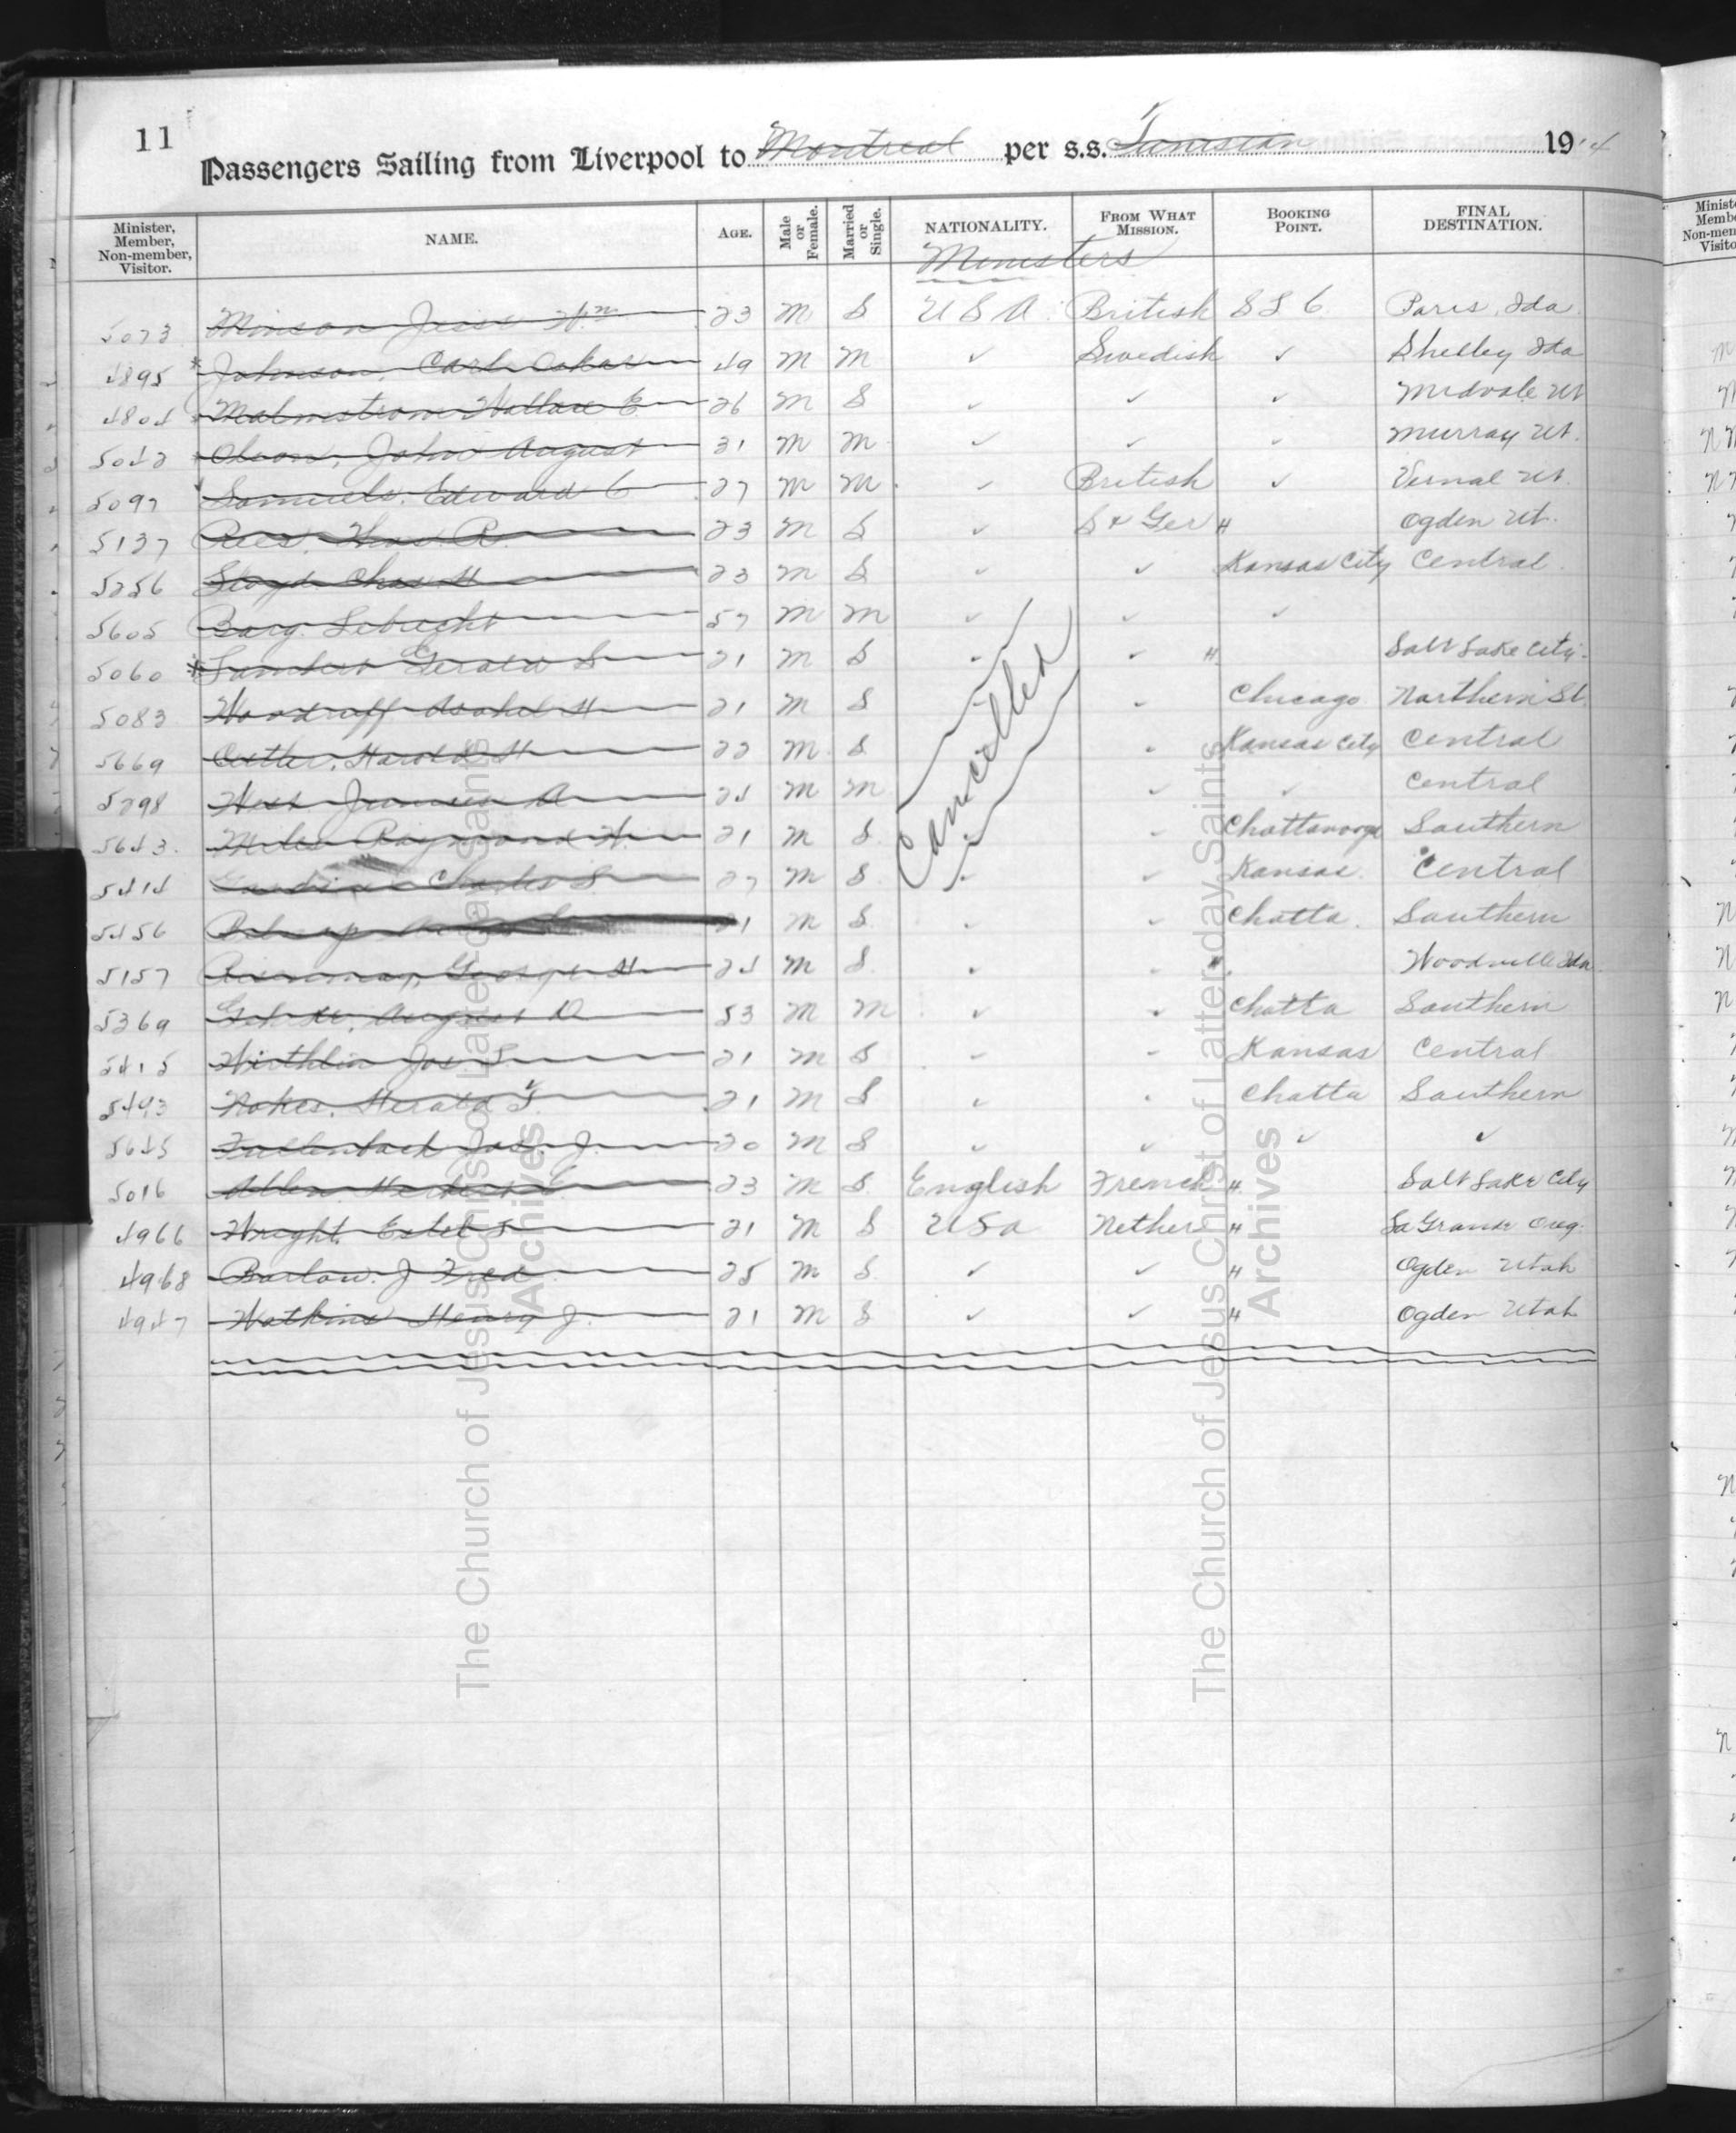 11
Passengers Sailing from Liverpool to Montreal per s.s. Tunisian 1914
Minister, Member, Non-member, Visitor. NAME. AGE. Male or Female. Married or Single. NATIONALITY. FROM WHAT MISSION. BOOKING POINT. FINAL DESTINATION.
Ministers
5073 Minson Jesse Wm 23 M S USA British SLC Paris, Ida
4895 * Johnson, Carl Oskar 49 M M ✓ Swedish ✓ Shelley Ida
4804 Malmstrom Wallace E 26 M S ✓ ✓ ✓ Midvale Ut
5042 Olson, John August 31 M M ✓ ✓ ✓ Murray Ut.
5097 Samuels, Edward C 27 M M ✓ British ✓ Vernal Ut.
5137 Rees, Thos. R. 23 M S ✓ S & Ger " Ogden Ut.
5256 Lloyd Chas H 23 M S ✓ ✓ Kansas City Central
5605 Barg. Lebrecht 57 M M ✓ ✓ ✓
5060 * Lambert Gerald S 21 M S ✓ ✓ " Salt Lake City
5083 Woodruff Asahel H 21 M S ✓ Chicago Northern St.
5669 Harold H 22 M S ✓ Kansas City Central
5298 West Francis A 24 M M ✓ ✓ Central
5643 Miles Raymond W. 21 M S ✓ Chattanooga Southern
5414 Charles S. 27 M S ✓ ✓ Kansas Central
5456 21 M S ✓ ✓ Chatta. Southern
5157 George H 24 M S ✓ ✓ " Woodville Ida
5369 August D 53 M M ✓ ✓ Chatta Southern
5415 Wirthlin Jos. L. 21 M S ✓ ✓ Kansas Central
5493 Nokes, Herald T. 21 M S ✓ ✓ Chatta Southern
5645 Jos. J. 20 M S ✓ ✓ ✓ ✓
5016 Allen Herbert E 23 M S English French " Salt Lake City
4966 Wright Estel S 21 M S USA Nether " La Grande Oreg.
4968 Barlow. J Fred 25 M S ✓ ✓ " Ogden Utah
4947 Watkins Henry J. 21 M S ✓ ✓ " Ogden Utah
Cancelled
The Church of Jesus Christ of Latter-day Saints
Archives
The Church of Jesus Christ of Latter-day Saints
Archives